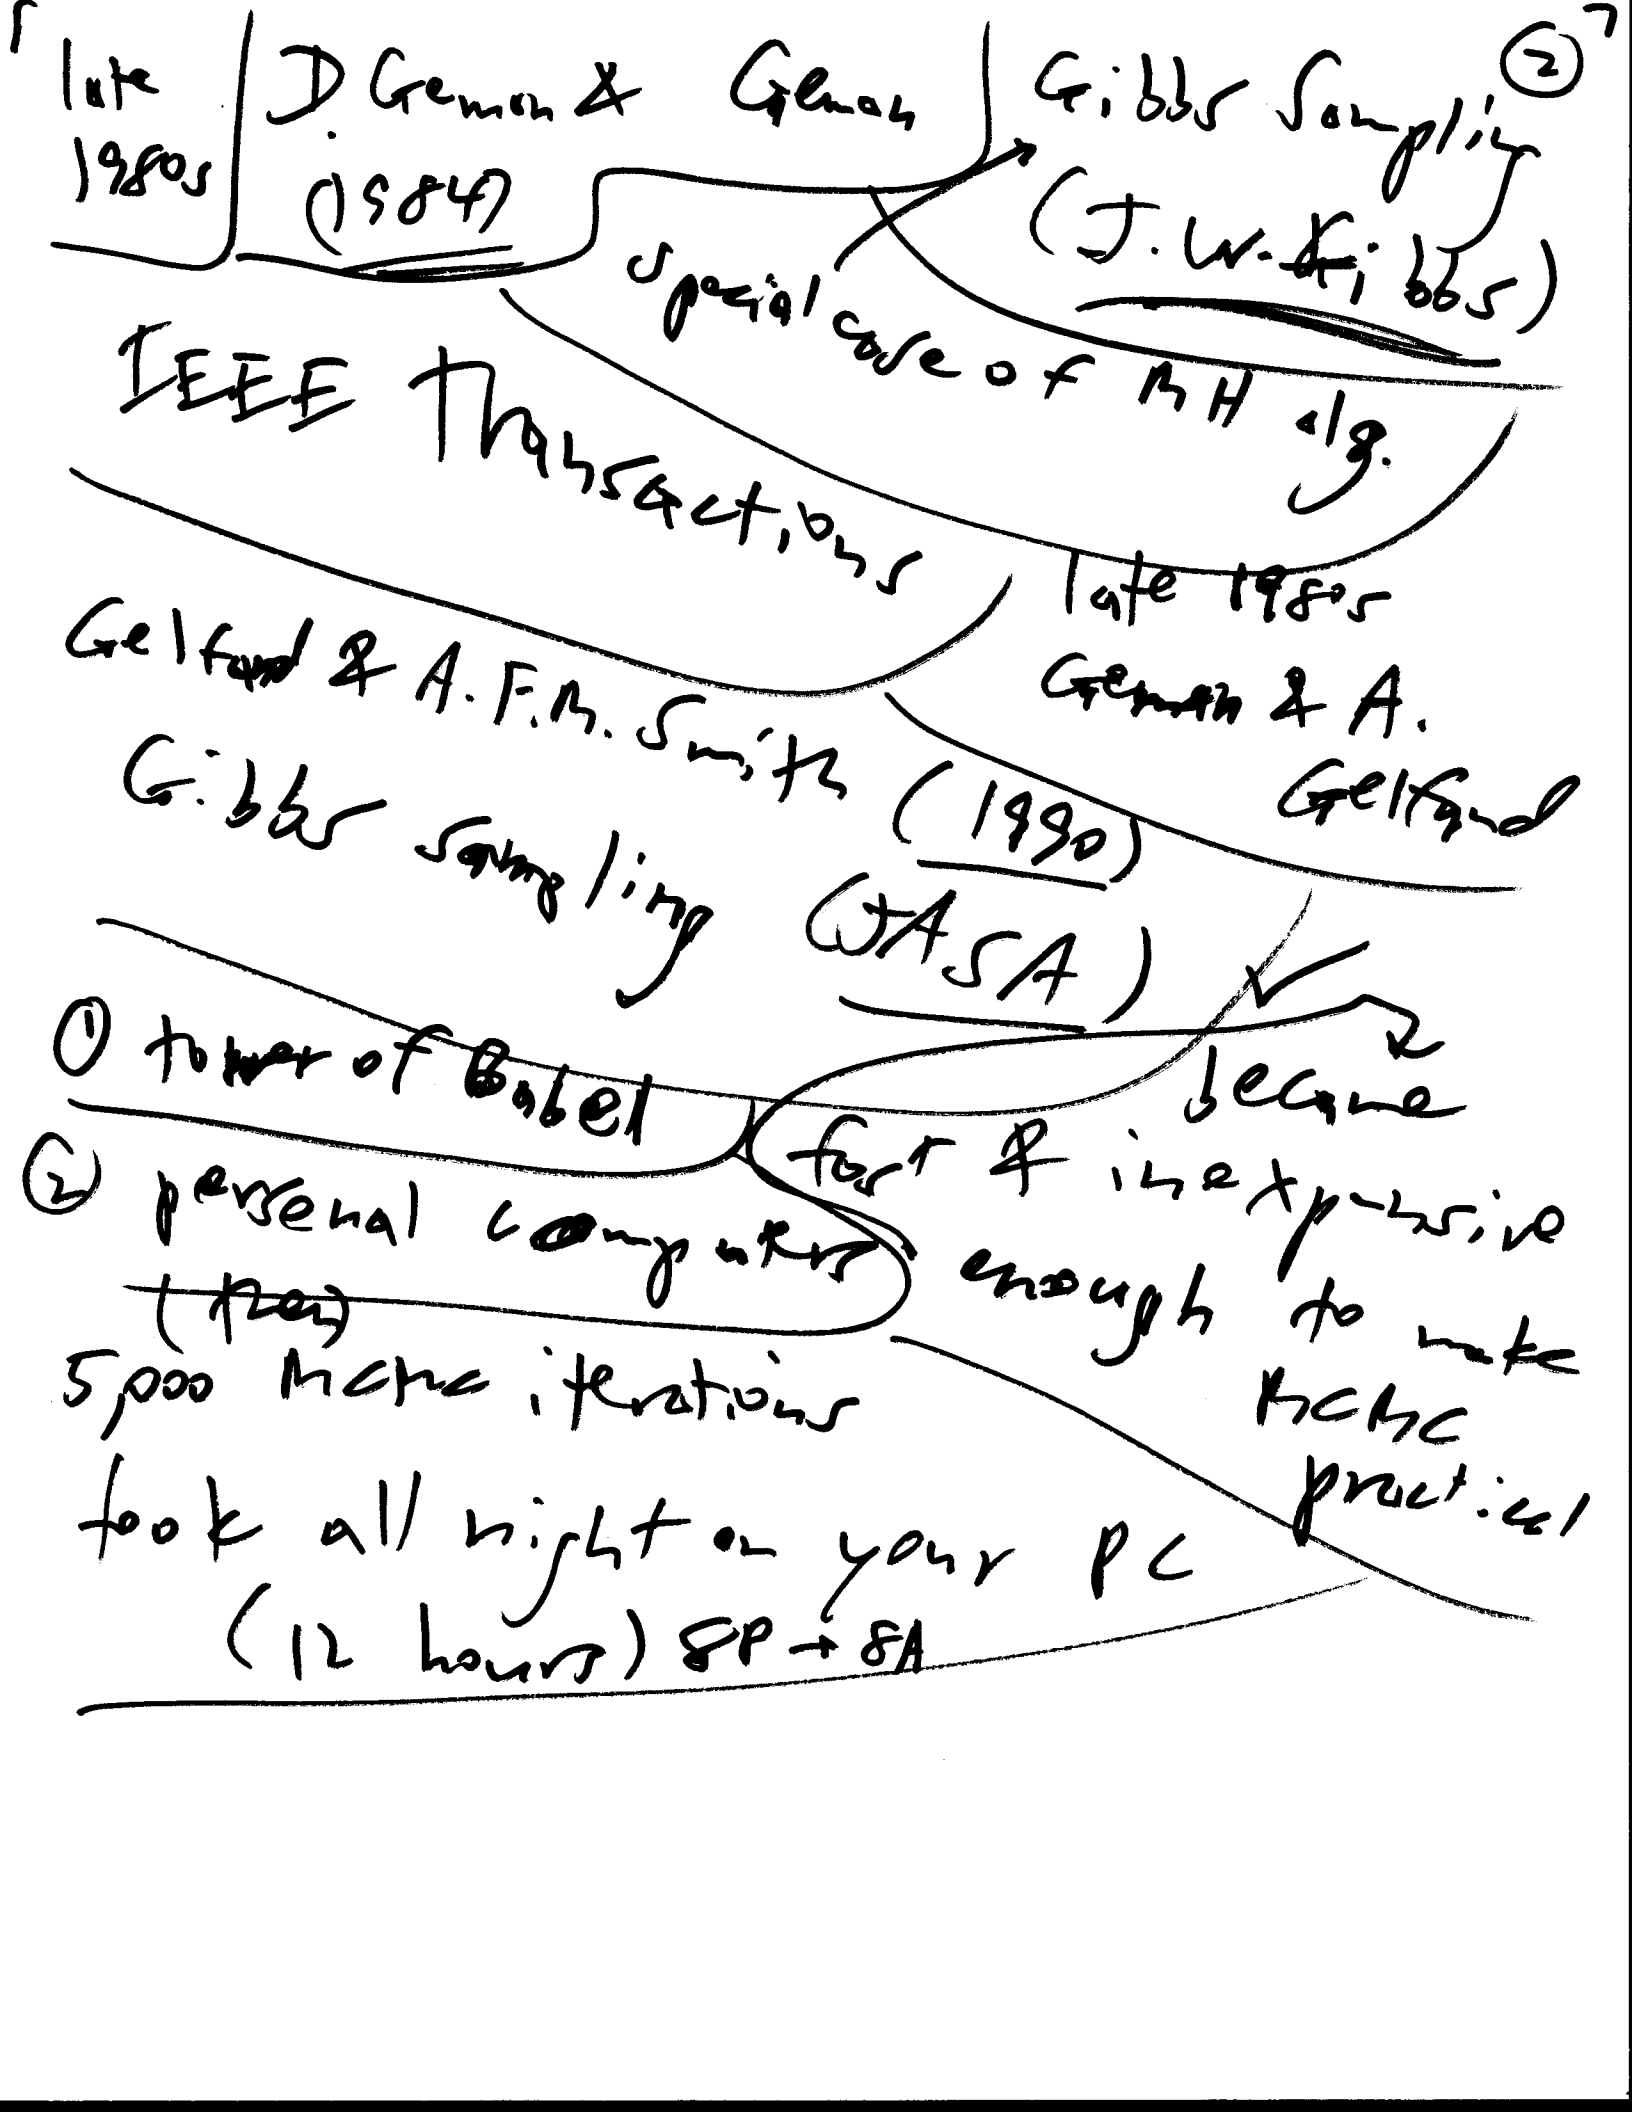 ②
late
1980s
D. Geman & Geman
(1984)
Gibbs Sampling
(J. W. Gibbs)
special case of MH alg.
IEEE Transactions
late 1980s
Geman & A.
Gelfand
Gelfand & A. F. M. Smith (1990)
Gibbs sampling (JASA)
① tower of Babel
② personal computers
(then)
became
fast & inexpensive
enough to make
MCMC
practical
5,000 MCMC iterations
took all night on your PC
(12 hours) 8P → 8A